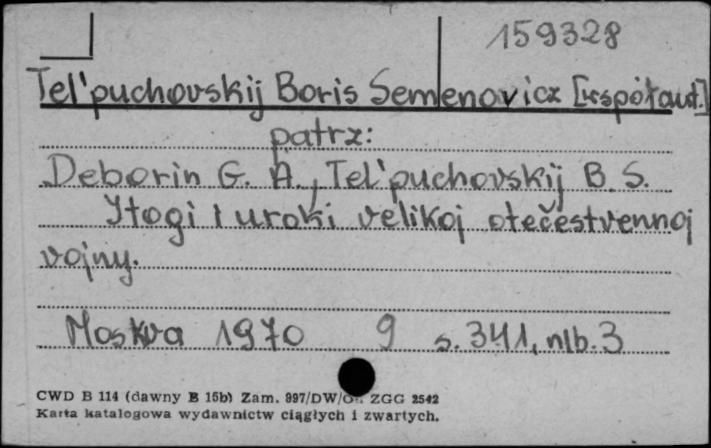 159328
Tel'puchovskij Boris Semenovicz [współaut.]
patrz:
Deborin G. A., Tel'puchovskij B. S.
Itogi i uroki velikoj otečestvennoj
vojny.
Moskva 1970 9 s. 341, nlb. 3
CWD B 114 (dawny B 15b) Zam. 997/DW/ ZGG 2542
Karta katalogowa wydawnictw ciągłych i zwartych.